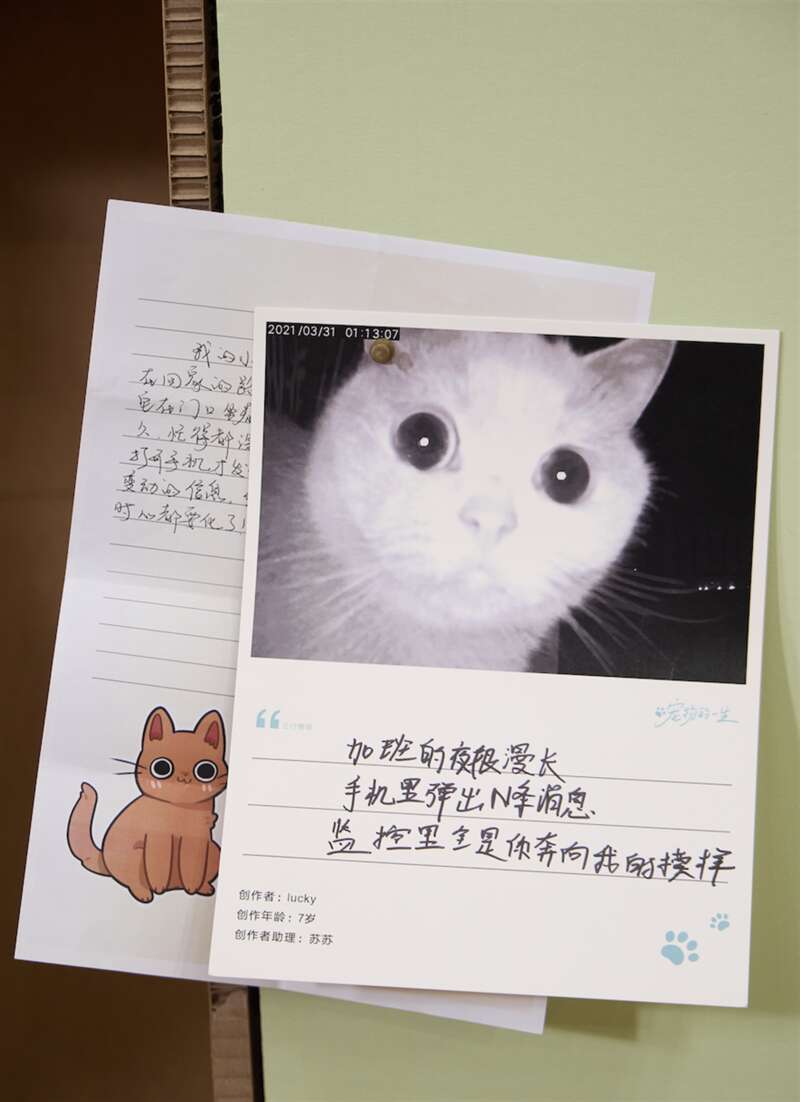 我的小
在回家的
它在门口坐着
久,忙得都没
打开手机才发
变动的信息,
时心都要化了!
2021/03/31 01:13:07
宠物的一生
加班的夜很漫长
手机里弹出N条消息
监控里全是你奔向我的模样
创作者:lucky
创作年龄:7岁
创作者助理:苏苏